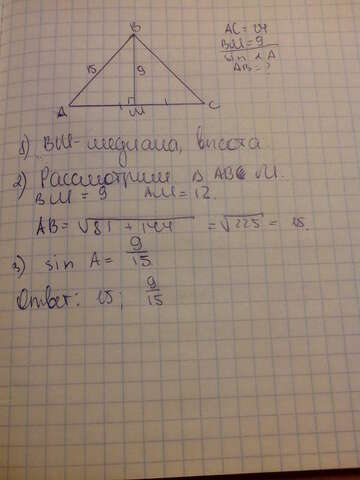 B
15
9
A
M
C
AC = 24
BM = 9
sin ∠ A
AB = ?
1) BM - медиана, высота
2) Рассмотрим Δ ABM.
BM = 9 AM = 12.
AB = √81 + 144 = √225 = 15.
3) sin A = 9/15
Ответ: 15; 9/15